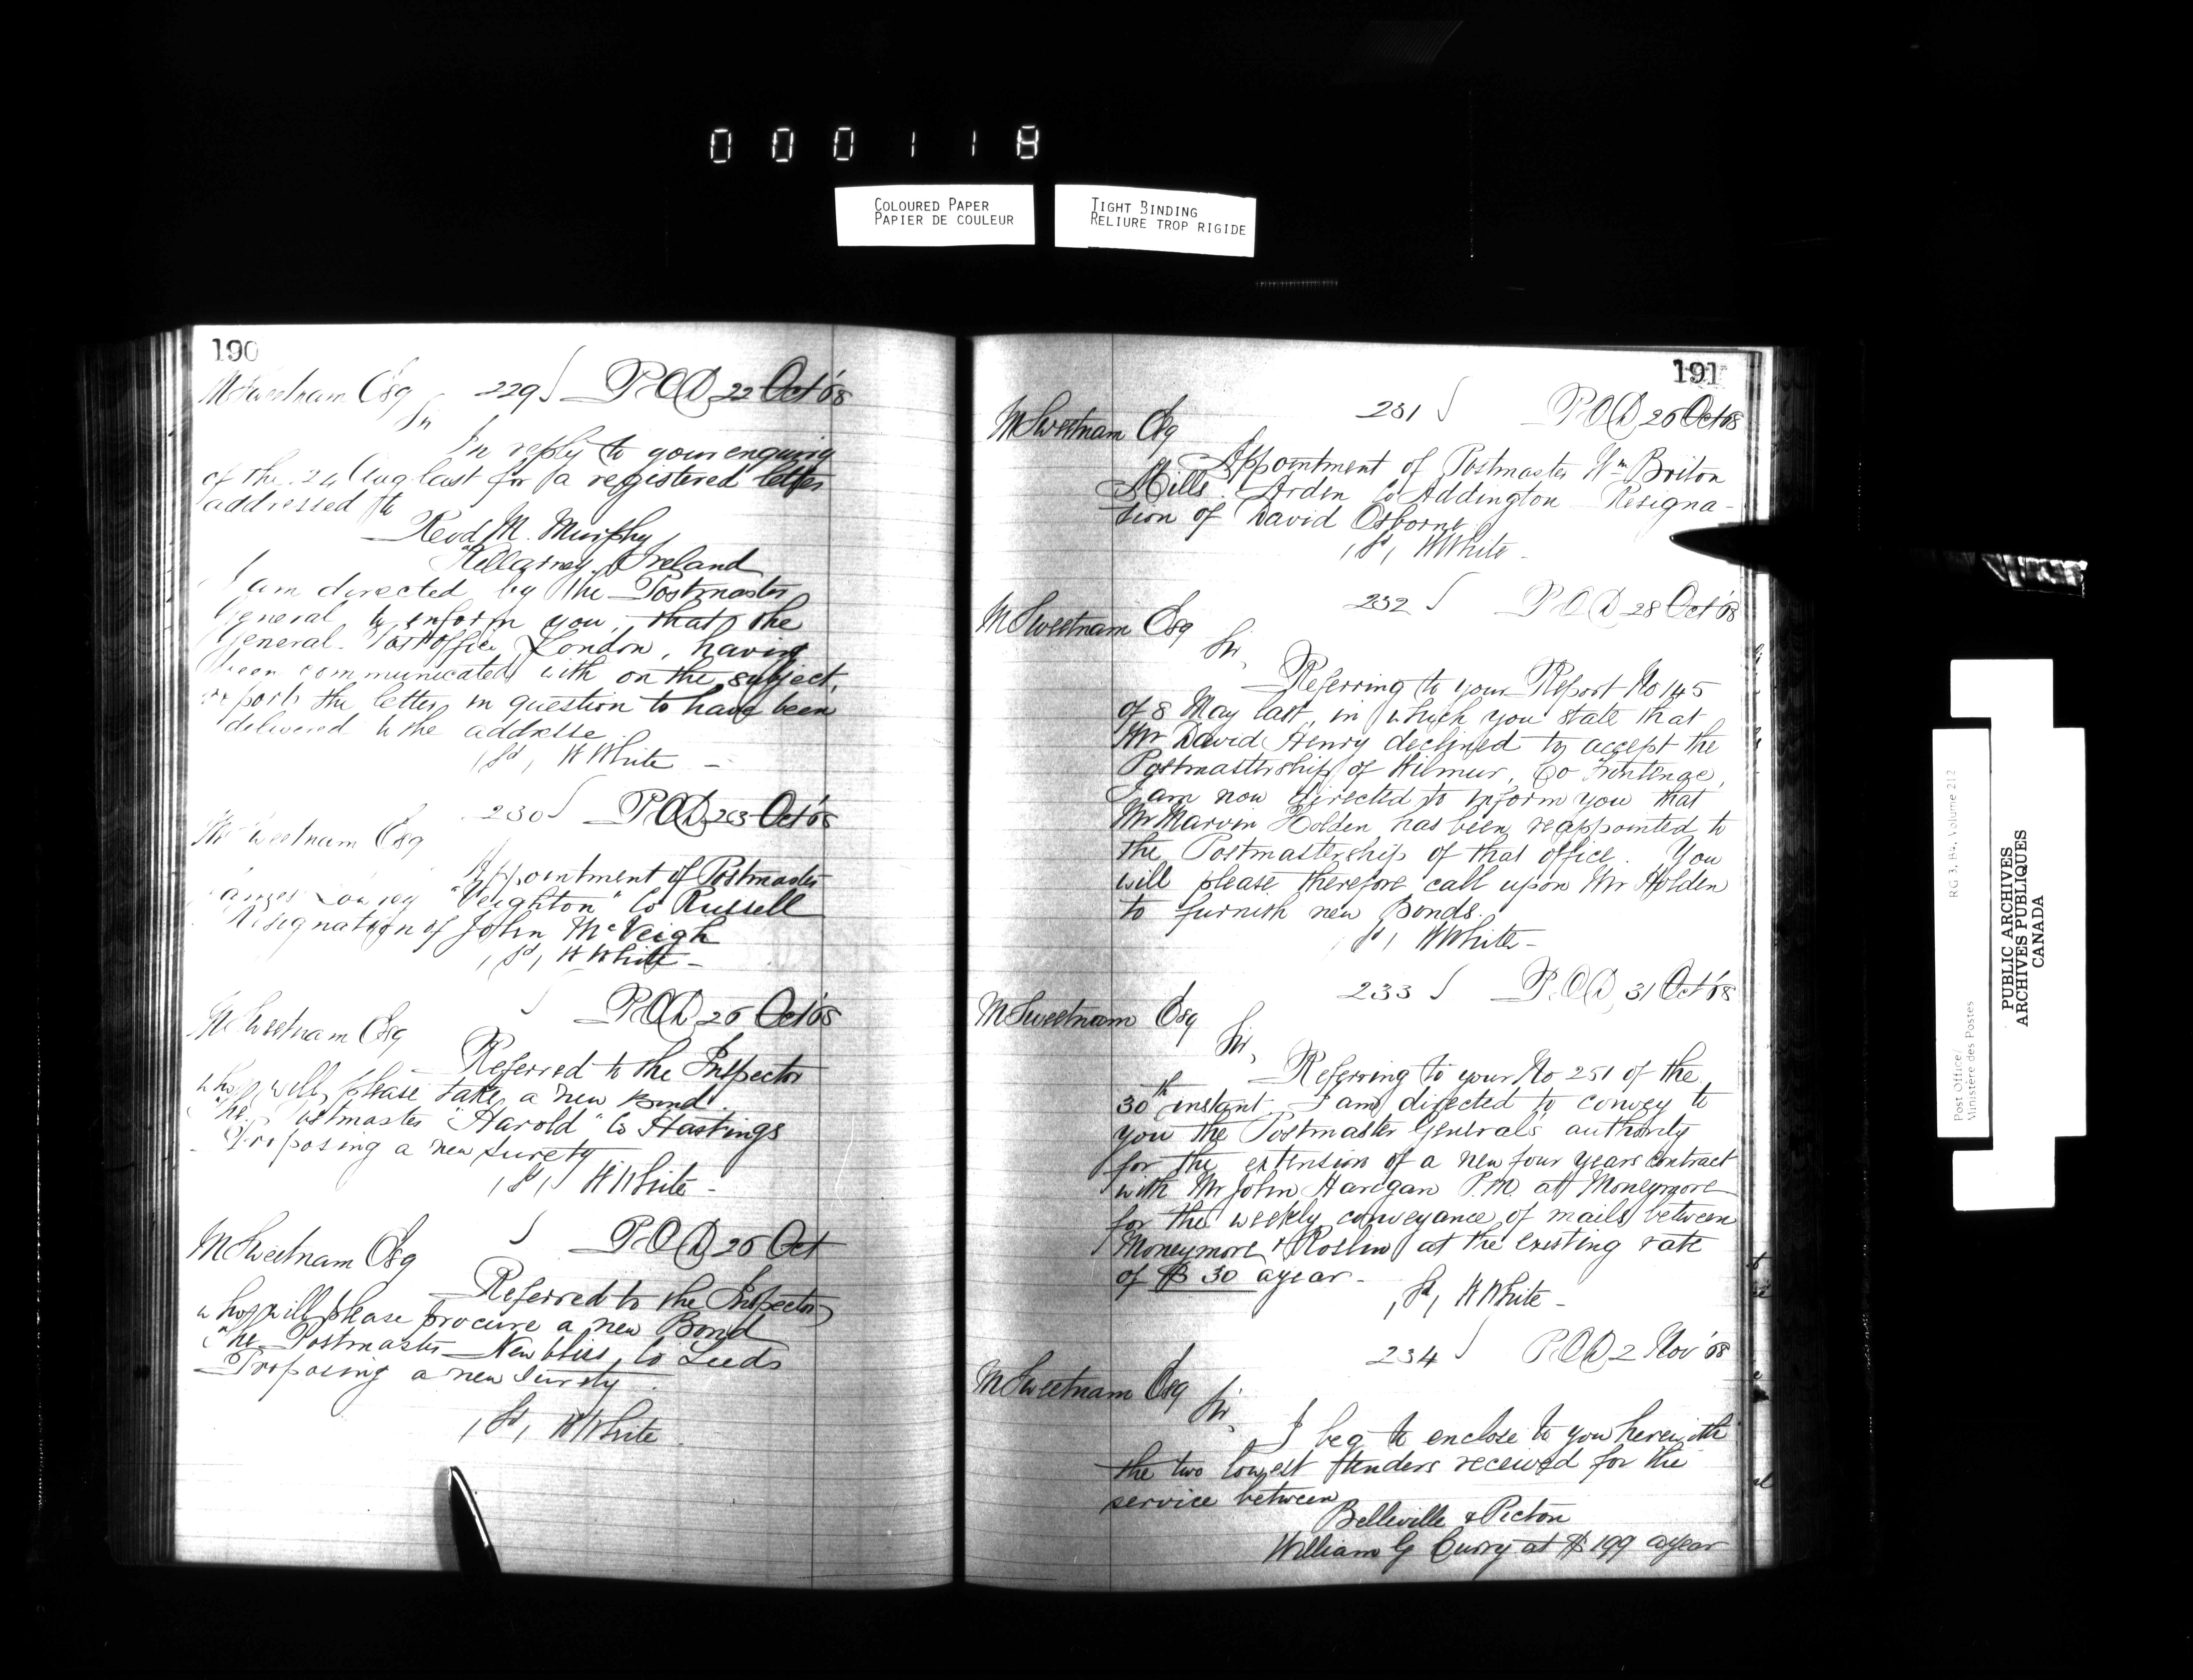 000118
COLOURED PAPER
PAPIER DE COULEUR
TIGHT BINDING
RELIURE TROP RIGIDE
190
M Sweetnam Esq 229 P.O.D. 22 Oct '68
Sir
In reply to your enquiry
of the 24 Aug last for a registered letter
addressed to
Revd M. Murphy
Killarney, Ireland
I am directed by the Postmaster
General to inform you, that the
General Post office, London, having
been communicated with on the subject,
reports the letter in question to have been
delivered to the addresse
Sd, W White -
230 P.O.D. 23 Oct '68
M Sweetnam Esq
Appointment of Postmaster
James "Veighton" Co Russell
Resignation of John McVeigh
Sd, W White -
P.O.D. 26 Oct '68
M Sweetnam Esq
Referred to the Inspector
who will please take a new Bond.
The Postmaster "Harold" Co Hastings
Proposing a new surety
Sd, W White -
P.O.D. 26 Oct
M Sweetnam Esq
Referred to the Inspector
who will please procure a new Bond
The Postmaster New bliss, Co Leeds
Proposing a new surety.
Sd, W White
191
231 P.O.D. 26 Oct 68
M Sweetnam Esq
Appointment of Postmaster Wm Briton
Mills. Arden Co Addington Resigna-
tion of David Osborne
Sd, W White -
232 P.O.D. 28 Oct '68
M Sweetnam Esq
Sir,
Referring to your Report No 145
of 8 May last, in which you state that
Mr David Henry declined to accept the
Postmastership of Wilmur, Co Frontenac,
I am now directed to inform you that
Mr Marvin Holden has been reappointed to
the Postmastership of that office. You
will please therefore call upon Mr Holden
to furnish new Bonds.
Sd, W White -
233 P.O.D. 31 Oct '68
M Sweetnam Esq
Sir,
Referring to your No 251 of the
30th instant. I am directed to convey to
you the Postmaster Generals authority
for the extension of a new four years contract
with Mr John Harigan P.M. at Moneymore
for the weekly conveyance of mails between
Moneymore & Roslin at the existing rate
of $ 30 a year -
Sd, W White -
234 P.O.D. 2 Nov '68
M Sweetnam Esq
Sir,
I beg to enclose to you herewith
the two lowest tenders received for the
service between
Belleville & Picton
William G Curry at $ 199 a year
Post Office/
Ministère des Postes
RG 3, B4, Volume 212
PUBLIC ARCHIVES
ARCHIVES PUBLIQUES
CANADA